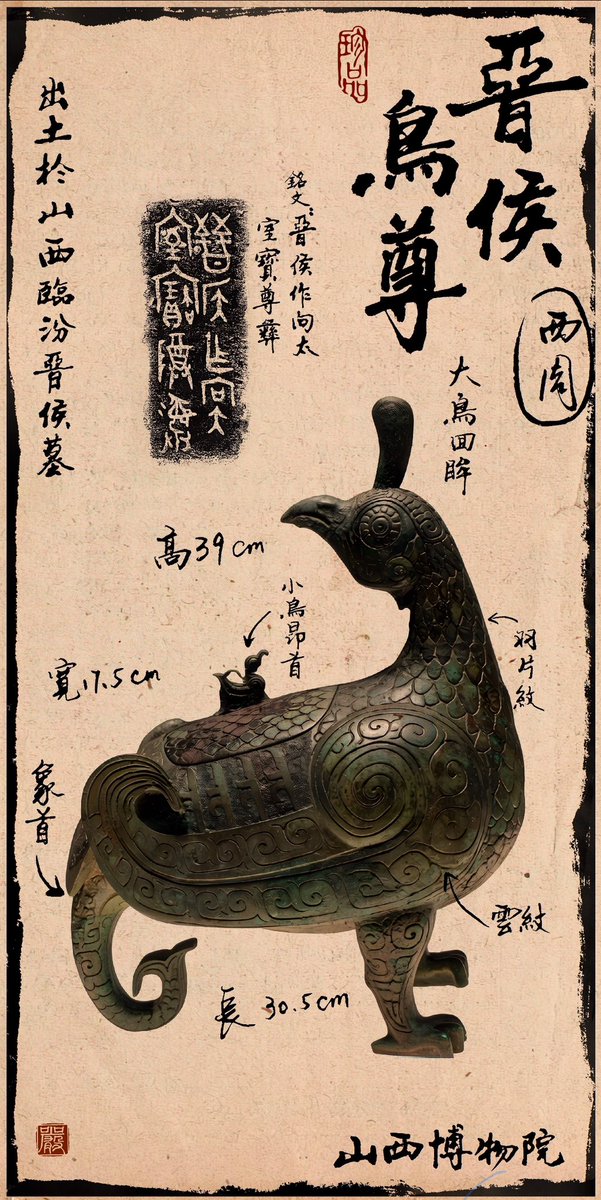 晉侯
鳥尊
西周
珍品
大鳥回眸
銘文:晉侯作向太
室寶尊彝
出土於山西臨汾晉侯墓
高39cm
小鳥昂首
羽片紋
寬17.5cm
象首
雲紋
長30.5cm
山西博物院